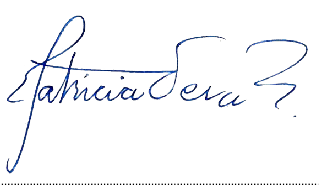 Patricia Vera R.